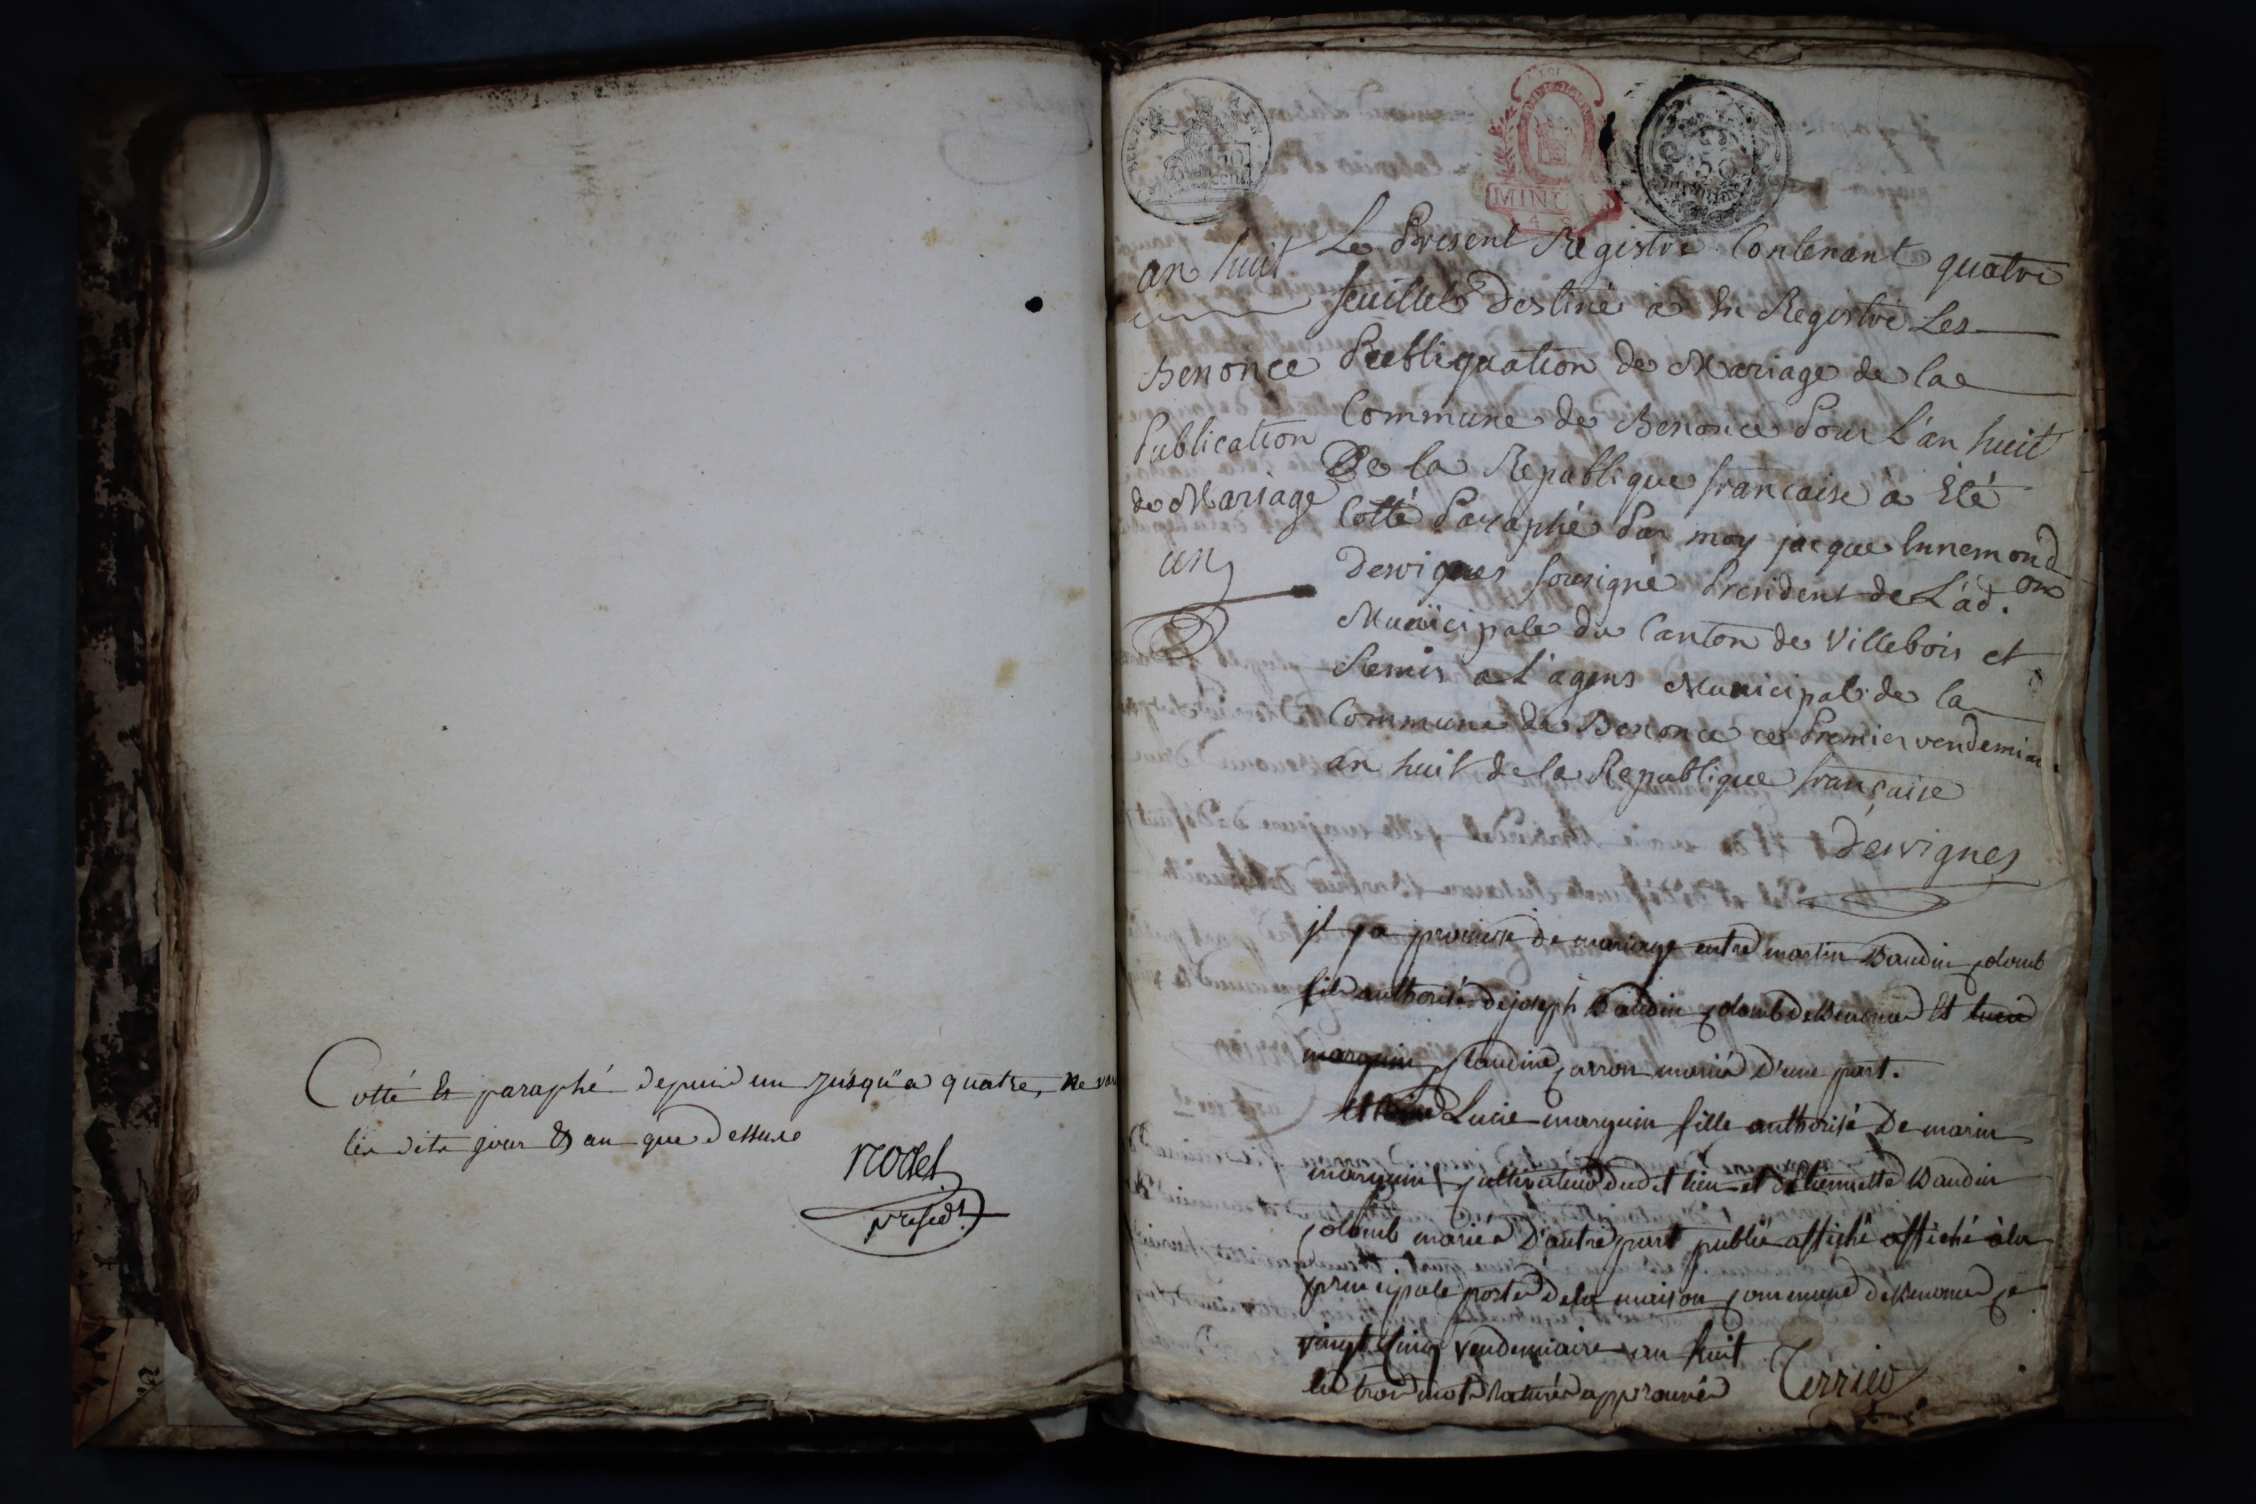 Cotté & paraphé depuis un jusqu'a quatre, ne var
les dits jour & an que dessus
nodet
presidt
MINUTE
an huit
Benonce
Publication
de Mariage
un
Le Present Registre Contenant quatre
feuillet destiné a En Registre Les
Publiquation de Mariage de la
Commune de Benonce Pour L'an huit
De la Republique francaise a Eté
Cotté Paraphé Par moy jacque Ennemond
Dervignes sousigné President de L'ad.on
Municipale du Canton de Villebois et
Remis a L'agens Municipal de la
Commune de Benonce ce Premier vendemiai
an huit de la Republique française
dervignes
jl y a promesse de mariage entre martin Baudin colomb
fils authorisé de joseph Baudin colomb de Benonce et Lucie
marquin claudine carron marié d'une part.
et Lucie marquin fille authorisé de marin
marquin cultivateur dudt lieu et d'Etiennette Baudin
colomb mariés d'autre part publié affiché affiché à la
principale porte de la maison commune de Benonce ce
vingt cinq vendemiaire an huit
les trois mots raturés approuvés Terrier